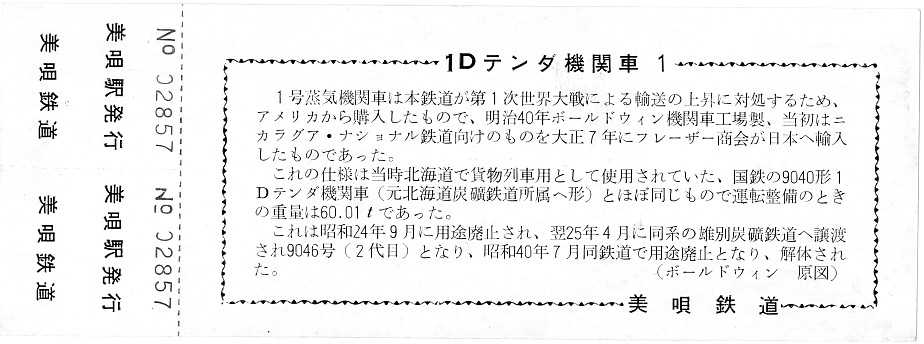 1Dテンダ機関車 1
1号蒸気機関車は本鉄道が第1次世界大戦による輸送の上昇に対処するため、
アメリカから購入したもので、明治40年ボールドウィン機関車工場製、当初はニ
カラグア・ナショナル鉄道向けのものを大正7年にフレーザー商会が日本へ輸入
したものであった。
これの仕様は当時北海道で貨物列車用として使用されていた、国鉄の9040形1
Dテンダ機関車(元北海道炭礦鉄道所属ヘ形)とほぼ同じもので運転整備のとき
の重量は60.01tであった。
これは昭和24年9月に用途廃止され、翌25年4月に同系の雄別炭礦鉄道へ譲渡
され9046号(2代目)となり、昭和40年7月同鉄道で用途廃止となり、解体され
た。
(ボールドウィン 原図)
美唄鉄道
No 02857
美唄駅発行
美唄鉄道
No 02857
美唄駅発行
美唄鉄道